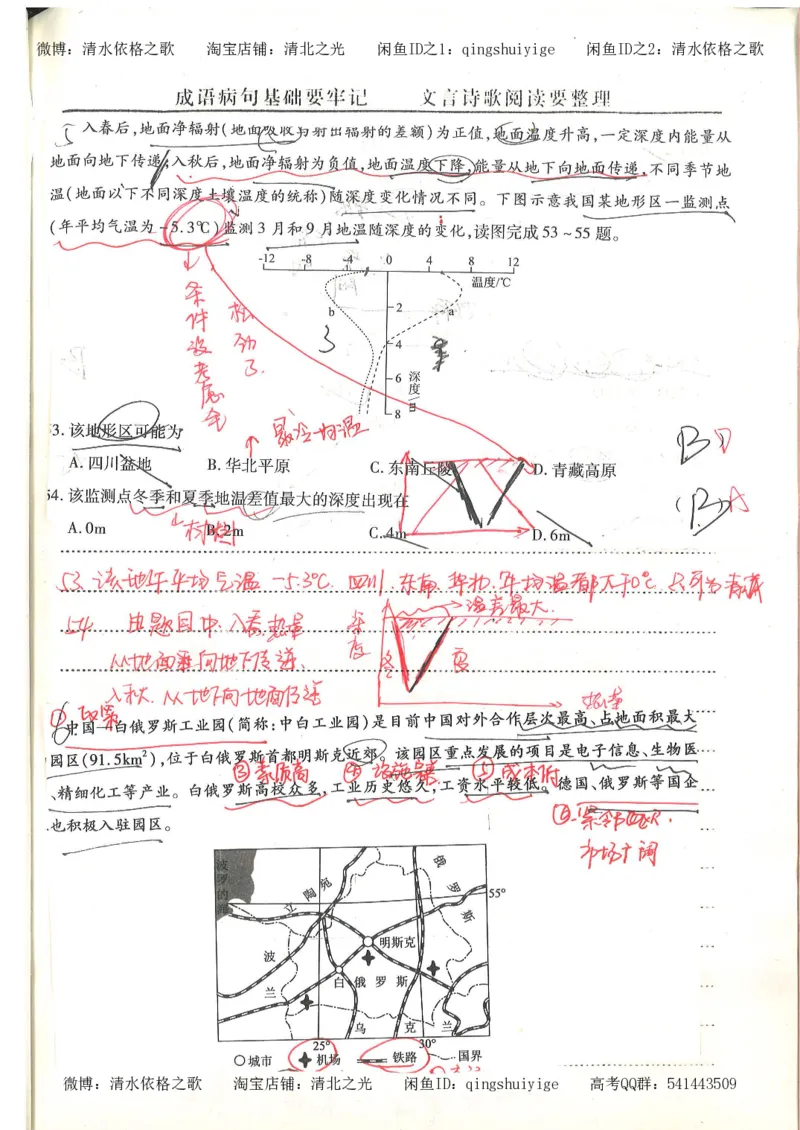 微博：清水依格之歌 淘宝店铺：清北之光 闲鱼ID之1：qingshuiyige 闲鱼ID之2：清水依格之歌
成语病句基础要牢记 文言诗歌阅读要整理
入春后,地面净辐射(地面吸收与射出辐射的差额)为正值,地面温度升高,一定深度内能量从
地面向地下传递;入秋后,地面净辐射为负值,地面温度下降,能量从地下向地面传递,不同季节地
温(地面以下不同深度土壤温度的统称)随深度变化情况不同。下图示意我国某地形区一监测点
(年平均气温为-5.3℃)监测3月和9月地温随深度的变化,读图完成53~55题。
-12 -8 -4 0 4 8 12
温度/℃
2
b a
4
6
8
深度/m
3
条件没考虑全
最冷均温
3.该地形区可能为
A.四川盆地 B.华北平原 C.东南丘陵 D.青藏高原
B D
54.该监测点冬季和夏季地温差值最大的深度出现在
(B) A
A.0m B.2m C.4m D.6m
53.该地年平均气温-5.3℃.四川、东南、华北.年均温都大于0℃.只可为青藏
54. 由题目中.入春热量
从地面垂向地下传递、
入秋.从地下向地面传递
深度
温差最大
冬 夏
① 政策
中国—白俄罗斯工业园(简称:中白工业园)是目前中国对外合作层次最高、占地面积最大
园区(91.5km²),位于白俄罗斯首都明斯克近郊。该园区重点发展的项目是电子信息、生物医
③素质高 ⑤成本低
、精细化工等产业。白俄罗斯高校众多,工业历史悠久,工资水平较低。德国、俄罗斯等国企
也积极入驻园区。
市场广阔
波罗的海
立陶宛
俄罗斯
55°
明斯克
波兰
白俄罗斯
乌克兰
25° 30°
城市 机场 铁路 国界
微博：清水依格之歌 淘宝店铺：清北之光 闲鱼ID：qingshuiyige 高考QQ群：541443509